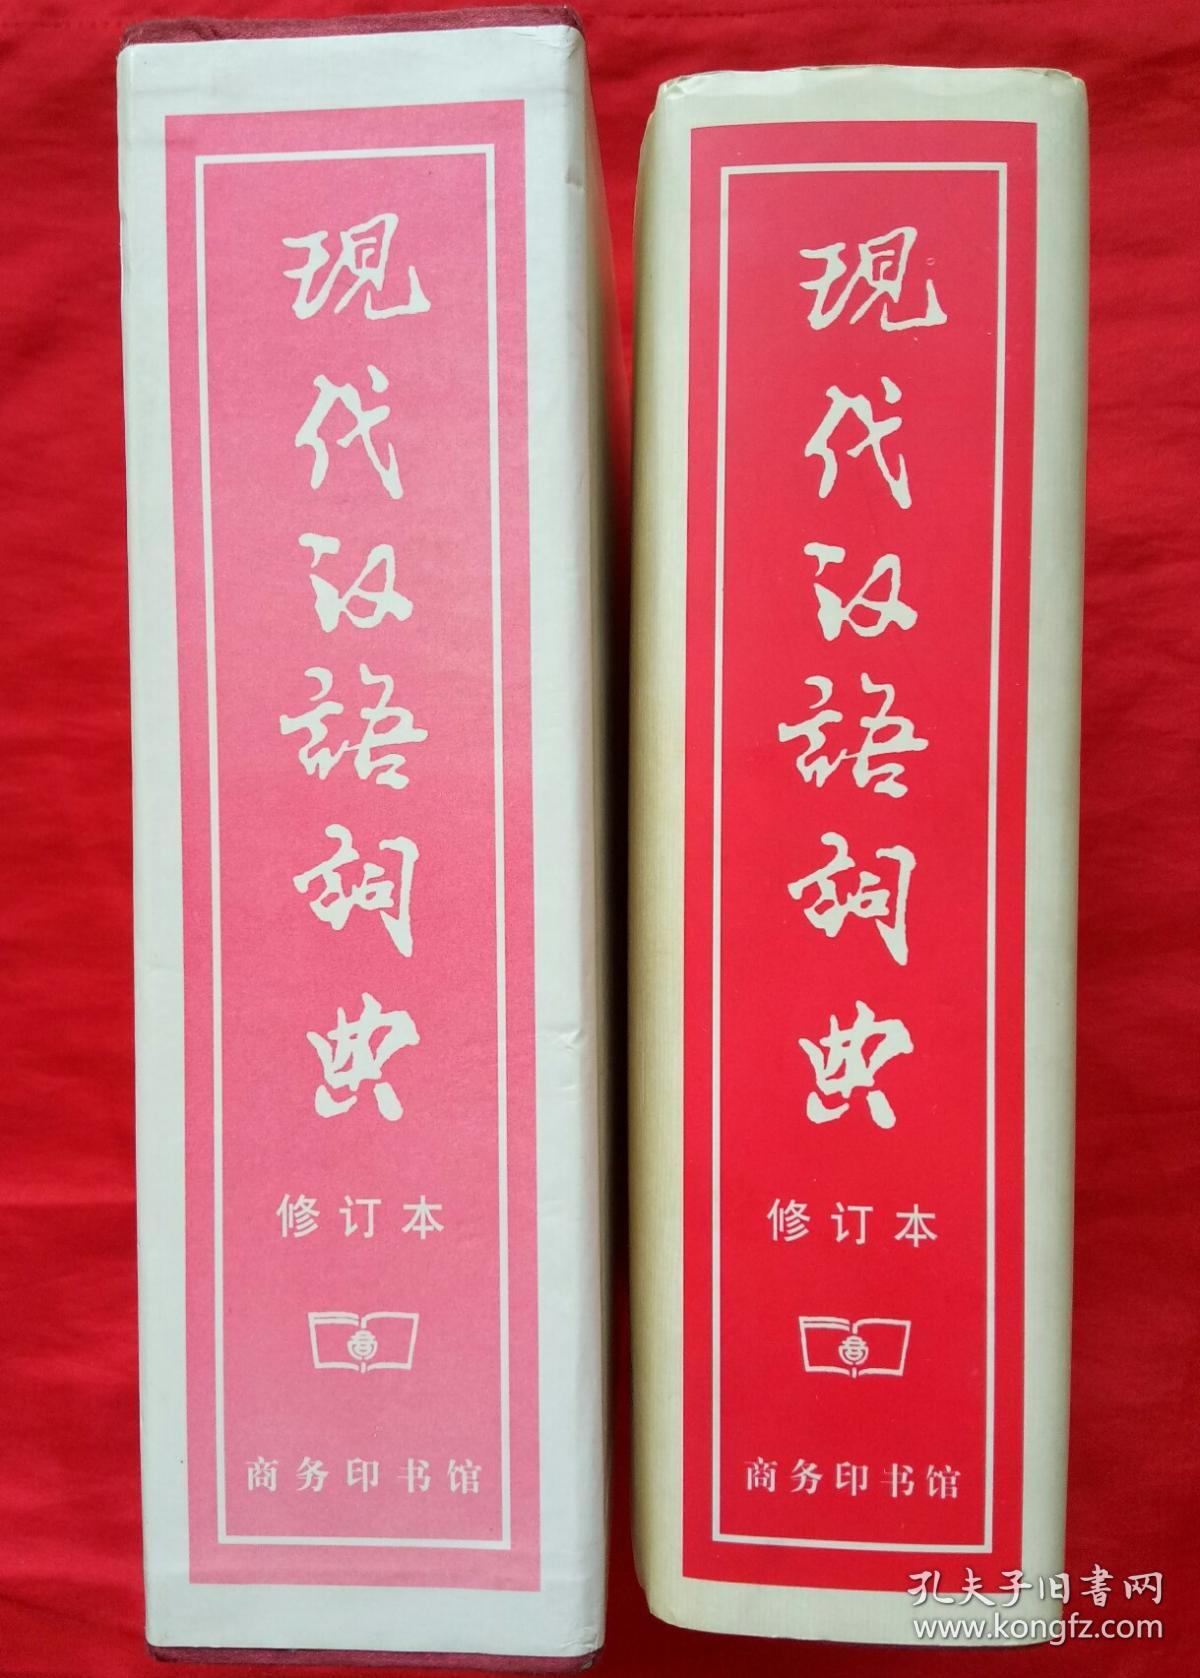 現代汉語詞典
修订本
商务印书馆
現代汉語詞典
修订本
商务印书馆
孔夫子旧書网
www.kongfz.com